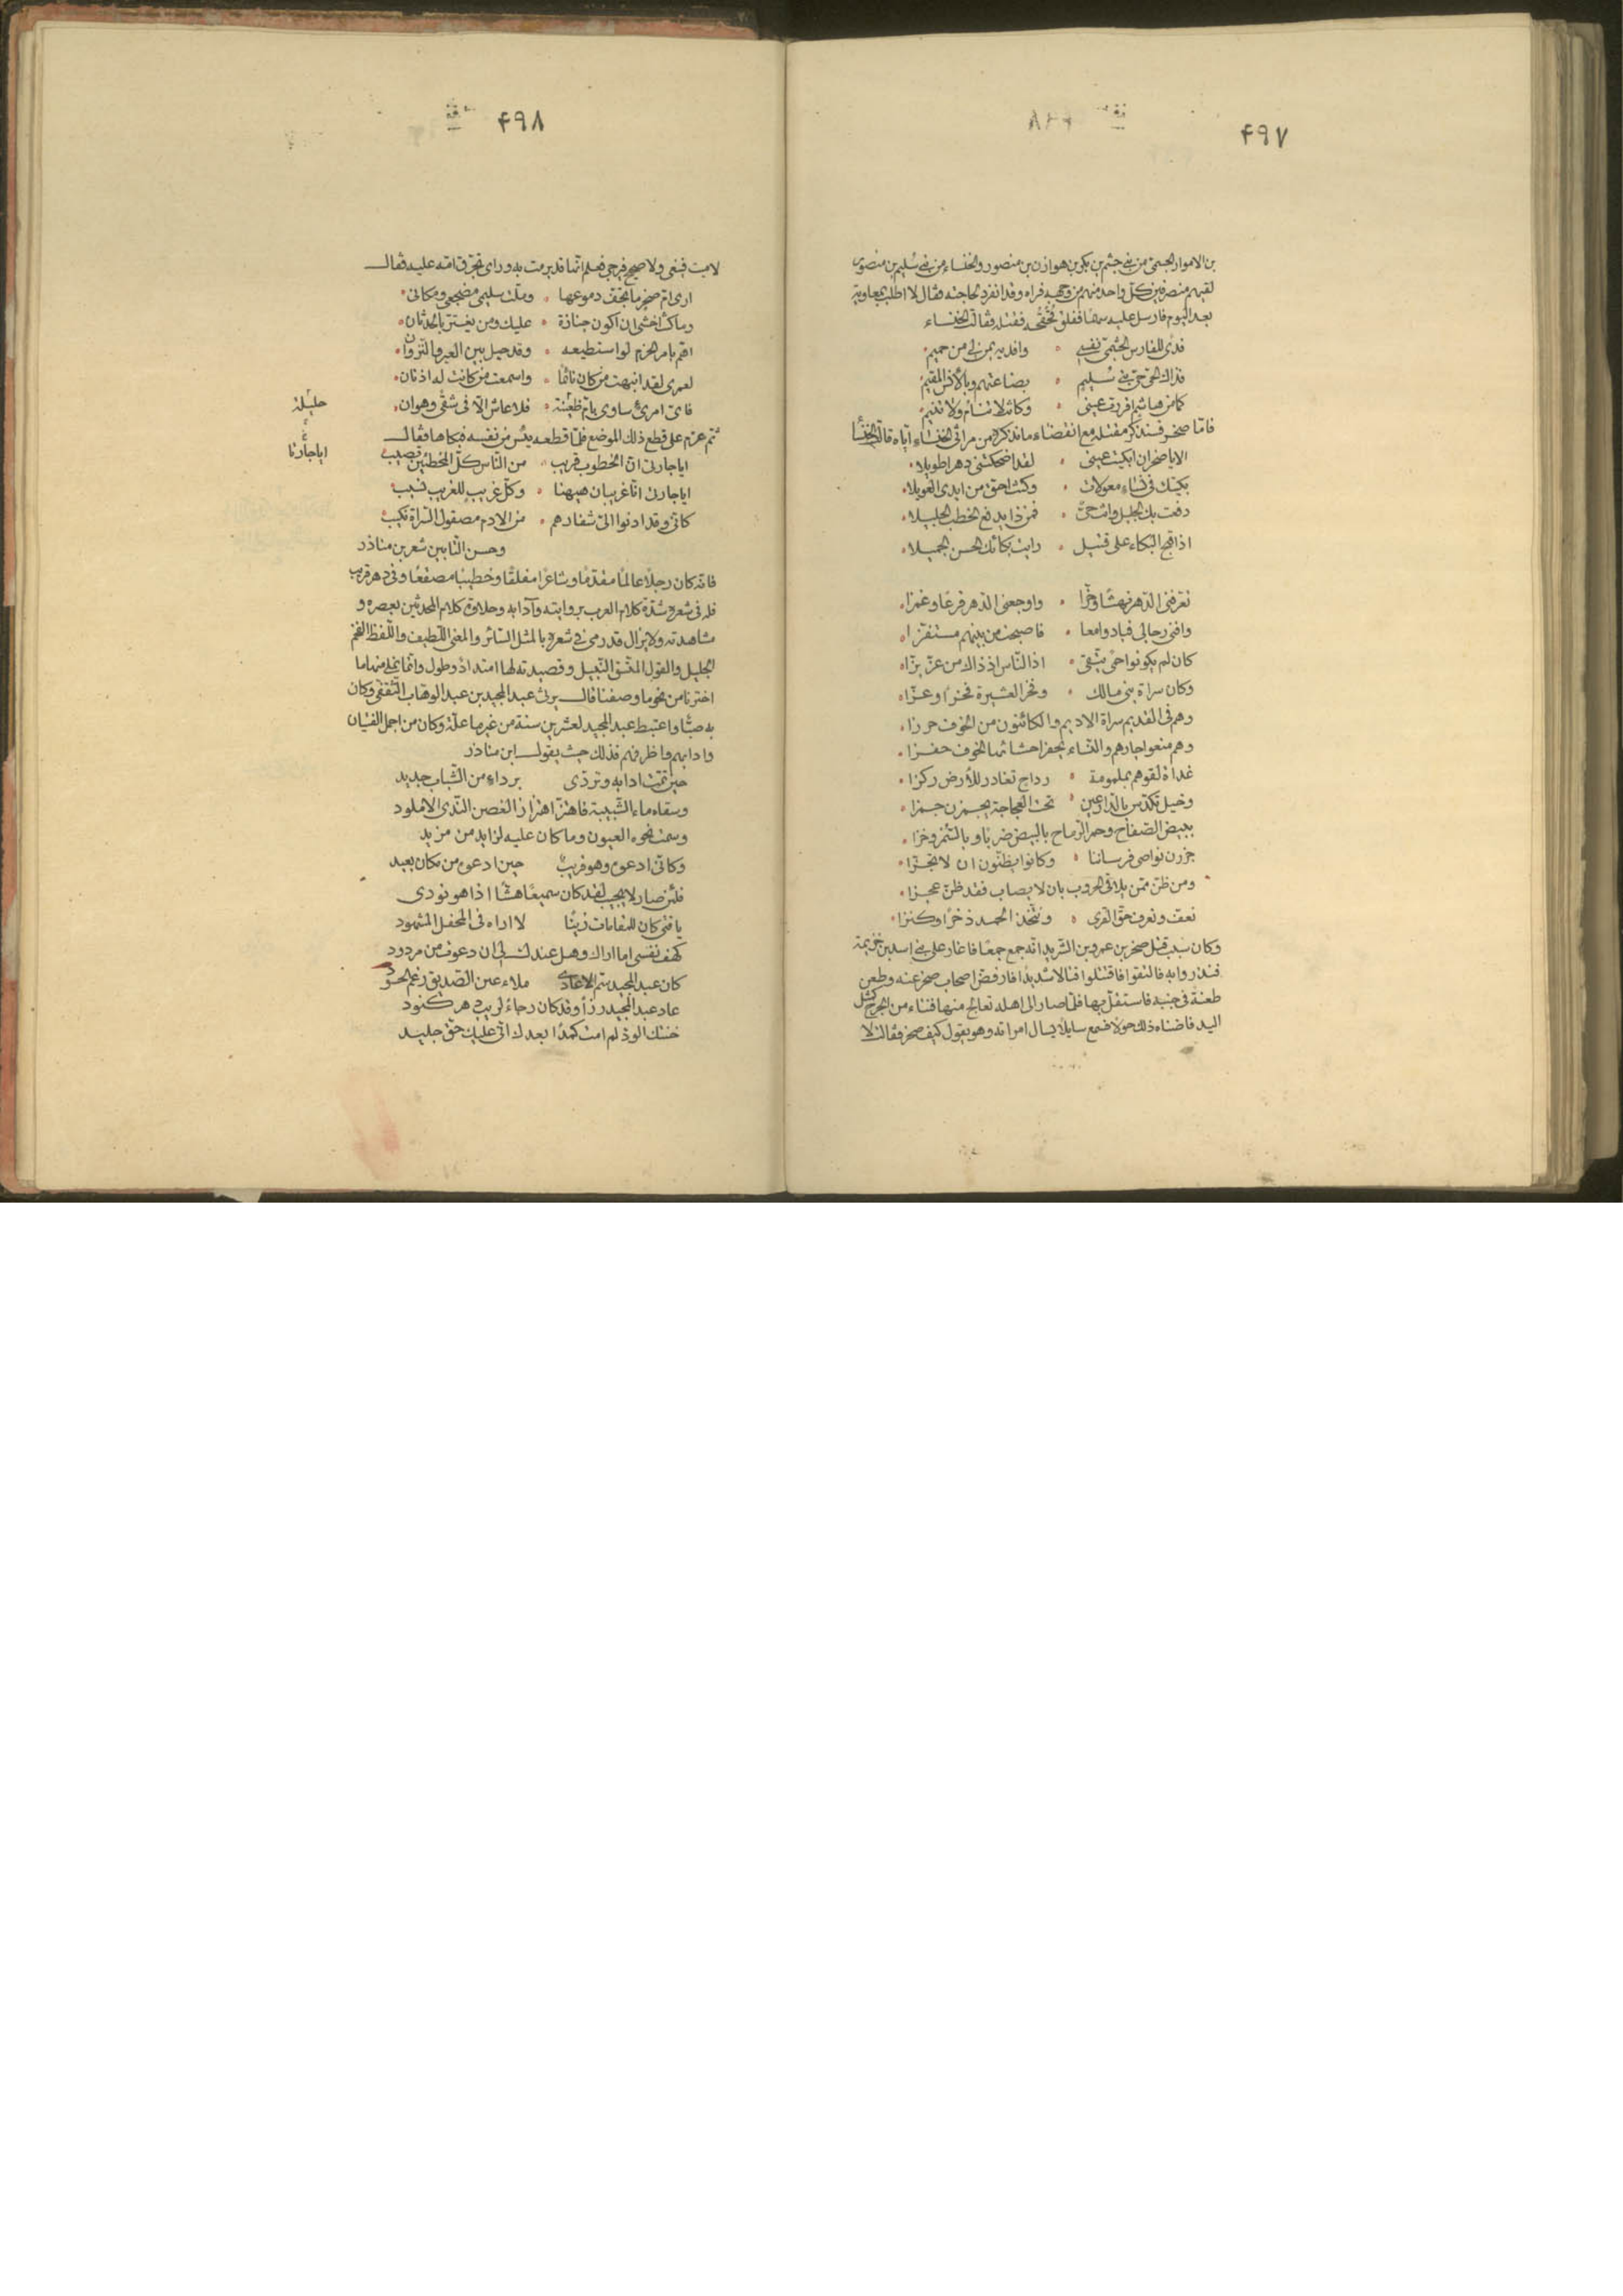 ۴۹۷
بن الاموار الجشمى من بنى جشم بن بكر بن هوازن بن منصور والخنساء من بنى سليم بن منصور
لقيهم منصرفين كل واحد منهم من وجهه فراه وقد انفرد لحاجته فقال لا اطلب بمعاوية
بعد اليوم فارسل عليه سهما ففلق قحقحه فقتله فقالت الخنساء
فدى للفارس الجشمى نفسى وافديه بمن لى من حميم
فداك الحى حى بنى سليم بضاعنهم وبالأنس المقيم
كما من هاشم اقررت عينى وكانت لا تنام ولا تنيم
فاما صخر فسنذكر مقتله مع انقضاء ما نذكره من مراثى الخنساء اياه قالت الخنسا
الا يا صخر ان ابكيت عينى لقد اضحكتنى دهرا طويلا
بكيتك فى نساء معولات وكنت احق من ابدى العويلا
دفعت بك الجليل وانت حىّ فمن ذا يدفع الخطب الجليلا
اذا قبح البكاء على قتيل رايت بكائك الحسن الجميلا
تعرفنى الدهر نهشا وحزّا واوجعنى الدهر قرعا وغمزا
وافنى رجالى فبادوا معا فاصبحت من بينهم مستفزا
كان لم يكونوا حمى يتقى اذ الناس اذ ذاك من عزّ بزّا
وكان سراة بنى مالك وفخر العشيرة فخرا وعزّا
وهم فى القديم سراة الاديم والكائنون من الخوف حرزا
وهم منعوا جارهم والنساء يحفز احشائها الخوف حفزا
غداة لقوهم بملمومة رداح تغادر للأرض ركزا
وخيل تكدس بالدارعين تحت العجاجة يجمزن جمزا
ببيض الصفاح وحمر الرماح بالبيض ضربا وبالسمر وخزا
جززن نواصى فرساننا وكانوا يظنون ان لا تجزّا
ومن ظنّ ممن يلاقى الحروب بان لا يصاب فقد ظنّ عجزا
نعف ونعرف حق القرى ونتخذ الحمد ذخرا وكنزا
وكان سبب قتل صخر بن عمرو بن الشريد انه جمع جمعا فاغار على بنى اسد بن خزيمة
فنذروا به فالتقوا فاقتتلوا قتالا شديدا فارفض اصحاب صخر عنه وطعن
طعنة فى جنبه فاستقل بها فلما صار الى اهله تعالج منها فنتاء من الجرح كمثل
اليد فاضناه ذلك حولا فسمع سايلا يسال امراته وهو يقول كيف صخر فقالت لا
۴۹۸
لا ميت فينعى ولا صحيح فيرجى فعلم انها قد برمت به وراى تحرق امه عليه فقال
ارى ام صخر ما تجف دموعها وملت سليمى مضجعى ومكانى
وما كنت اخشى ان اكون جنازة عليك ومن يغتر بالحدثان
اهم بامر الحزم لو استطيعه وقد حيل بين العير والنزوان
لعمرى لقد انبهت من كان نائما واسمعت من كانت له اذنان
فاى امرئ ساوى بام ظعينة فلا عاش الا فى شقى وهوان
حليلة
ثم عزم على قطع ذلك الموضع فلما قطعه يئس من نفسه فبكاها فقال
ايا جارتى ان الخطوب قريب من الناس كلّ المخطئين تصيب
ايا جارتا
ايا جارتى انا غريبان هيهنا وكلّ غريب للغريب نسيب
كانى وقد ادنوا الىّ شفارهم من الادم مصقول السراة نكيب
وحسن التابين شعر بن مناذر
فانه كان رجلا عالما مقدما وشاعرا مفلقا وخطيبا مصقعا وفى دهر قريب
فله فى شعره شدة كلام العرب بروايته وآدابه وحلاوة كلام المحدثين بعصره و
مشاهدته ولا يزال قد رمى فى شعره بالمثل السائر والمعنى اللطيف واللفظ الفخم
الجليل والقول المتسق النبيل وقصيدته لها امتداد وطول وانما نملى منها ما
اخترنا من نحو ما وصفنا قال يرثى عبد المجيد بن عبد الوهاب الثقفى وكان
به صبّا واعتبط عبد المجيد لعشرين سنة من غير ما علة وكان من اجمل الفتيان
وادابهم واظرفهم فذلك حيث يقول ابن مناذر
حين تمت ادابه وتردّى برداء من الشباب جديد
وسقاه ماء الشبيبة فاهتزّ اهتزاز الغصن الندى الاملود
وسمت نحوه العيون وما كان عليه لزايد من مزيد
وكانى ادعوه وهو قريب حين ادعوه من مكان بعيد
فلئن صار لا يجيب لقد كان سميعا هشا اذا هو نودى
يا فتى كان للمقامات زينا لا اراه فى المحفل المشهود
لهف نفسى اما اراك وهل عندك لى ان دعوت من مردود
كان عبد المجيد سم الاعادى ملاء عين الصديق رغم الحسود
عاد عبد المجيد رزأ وقد كان رجاء لريب دهر كنود
خنتك الود لم امت كمدا بعدك انى عليك حق جليد